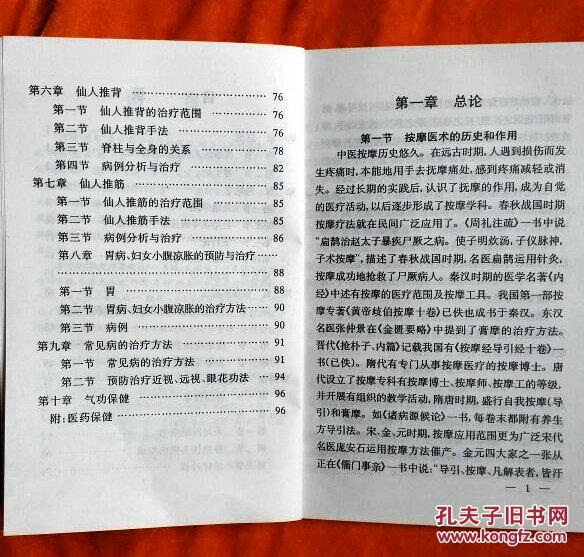 第六章 仙人推背 …………………… 76
第一节 仙人推背的治疗范围 ………… 76
第二节 仙人推背手法 ………………… 76
第三节 脊柱与全身的关系 …………… 78
第四节 病例分析与治疗 ……………… 82
第七章 仙人推筋 …………………… 85
第一节 仙人推筋的治疗范围 ………… 85
第二节 仙人推筋手法 ………………… 85
第三节 病例分析与治疗 ……………… 86
第八章 胃病、妇女小腹凉胀的预防与治疗 ……
…………………… 88
第一节 胃 …………………… 88
第二节 胃病、妇女小腹凉胀的治疗方法 …… 90
第三节 病例 …………………… 90
第九章 常见病的治疗方法 ………… 91
第一节 常见病的治疗方法 ………… 91
第二节 预防治疗近视、远视、眼花功法 …… 94
第十章 气功保健 …………………… 96
附:医药保健 …………………… 96
第一章 总论
第一节 按摩医术的历史和作用
中医按摩历史悠久。在远古时期,人遇到损伤而发
生疼痛时,本能地用手去抚摩痛处,感到疼痛减轻或消
失。经过长期的实践后,认识了抚摩的作用,成为自觉
的医疗活动,以后逐步形成了按摩学科。春秋战国时期
按摩疗法就在民间广泛应用了。《周礼注疏》一书中说
“扁鹊治赵太子暴疾尸厥之病。使子明炊汤,子仪脉神,
子术按摩”,描述了春秋战国时期,名医扁鹊运用针灸、
按摩成功地抢救了尸厥病人。秦汉时期的医学名著《内
经》中述有按摩的医疗范围及按摩工具。我国第一部按
摩专著《黄帝歧伯按摩十卷》已佚也成书于秦汉。东汉
名医张仲景在《金匮要略》中提到了膏摩的治疗方法。
晋代《抢朴子、内篇》记载我国有《按摩经导引经十卷》一
书(已佚)。隋代有专门从事按摩医疗的按摩博士。唐
代设立了按摩专科有按摩博士、按摩师、按摩工的等级,
并开展有组织的教学活动,隋唐时期,盛行自我按摩(导
引)和膏摩。如《诸病源候论》一书,每卷末都附有养生
方导引法。宋、金、元时期,按摩应用范围更为广泛宋代
名医庞安石运用按摩方法催产。金元四大家之一张从
正在《儒门事亲》一书中说:“导引、按摩、凡解表者,皆汗
— 1 —
孔夫子旧书网
www.kongfz.com